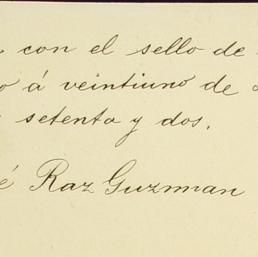 con el sello de
á veintiuno de
setenta y dos.
Raz Guzman